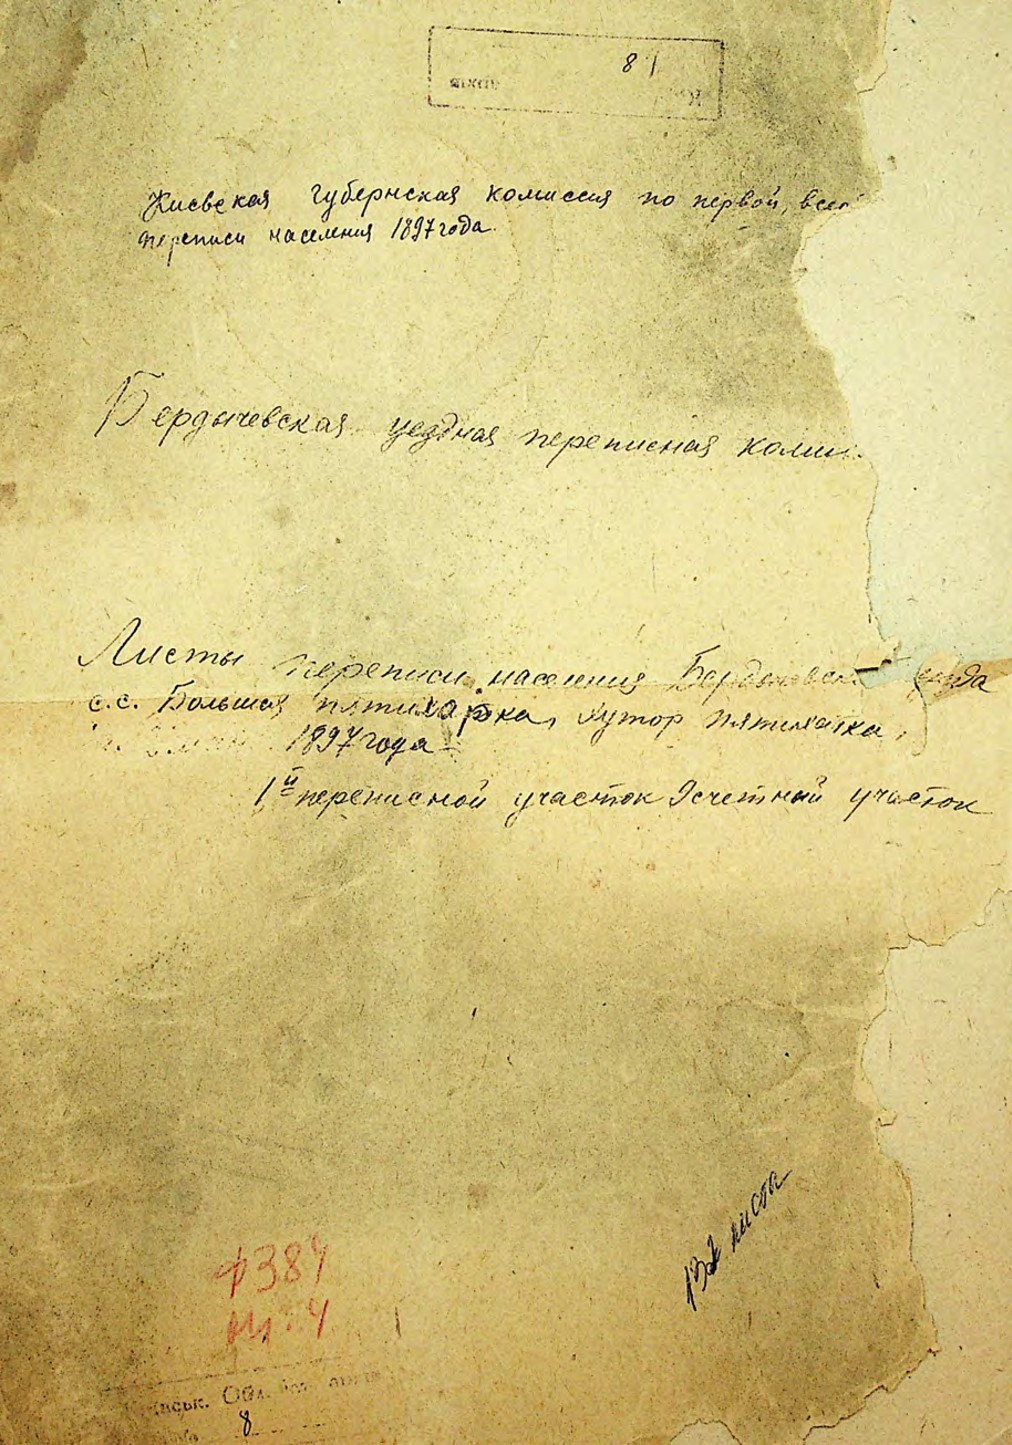 81
Киевская губернская комиссия по первой, всео
переписи населения 1897 года.
Бердычевская уездная переписная коми
Листы переписи населения Бердычевск уезда
с.с. Большая Пятихатка, Хутор Пятихатка,
1897 года
1й переписной участок 9 счетный участок
132 листа
Ф 384
8